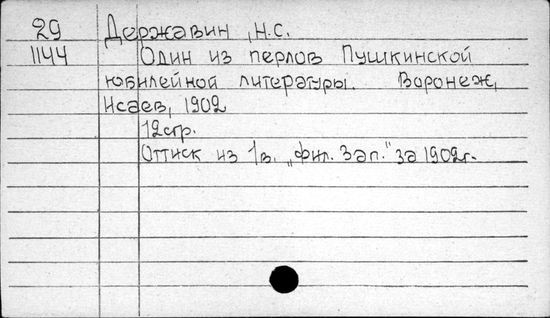 29 Державин, Н.С.
1144 Один из перлов Пушкинской
юбилейной литературы. Воронеж,
Исаев, 1902
12стр.
Оттиск из 1в. „Фил. Зап." за 1902г.